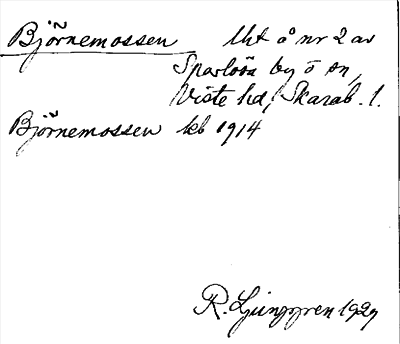 Björnemossen Utt å nr 2 av
Sparlösa by o sn,
Viste hd, Skarab. l.
Björnemossen kb 1914
R. Ljunggren 1927